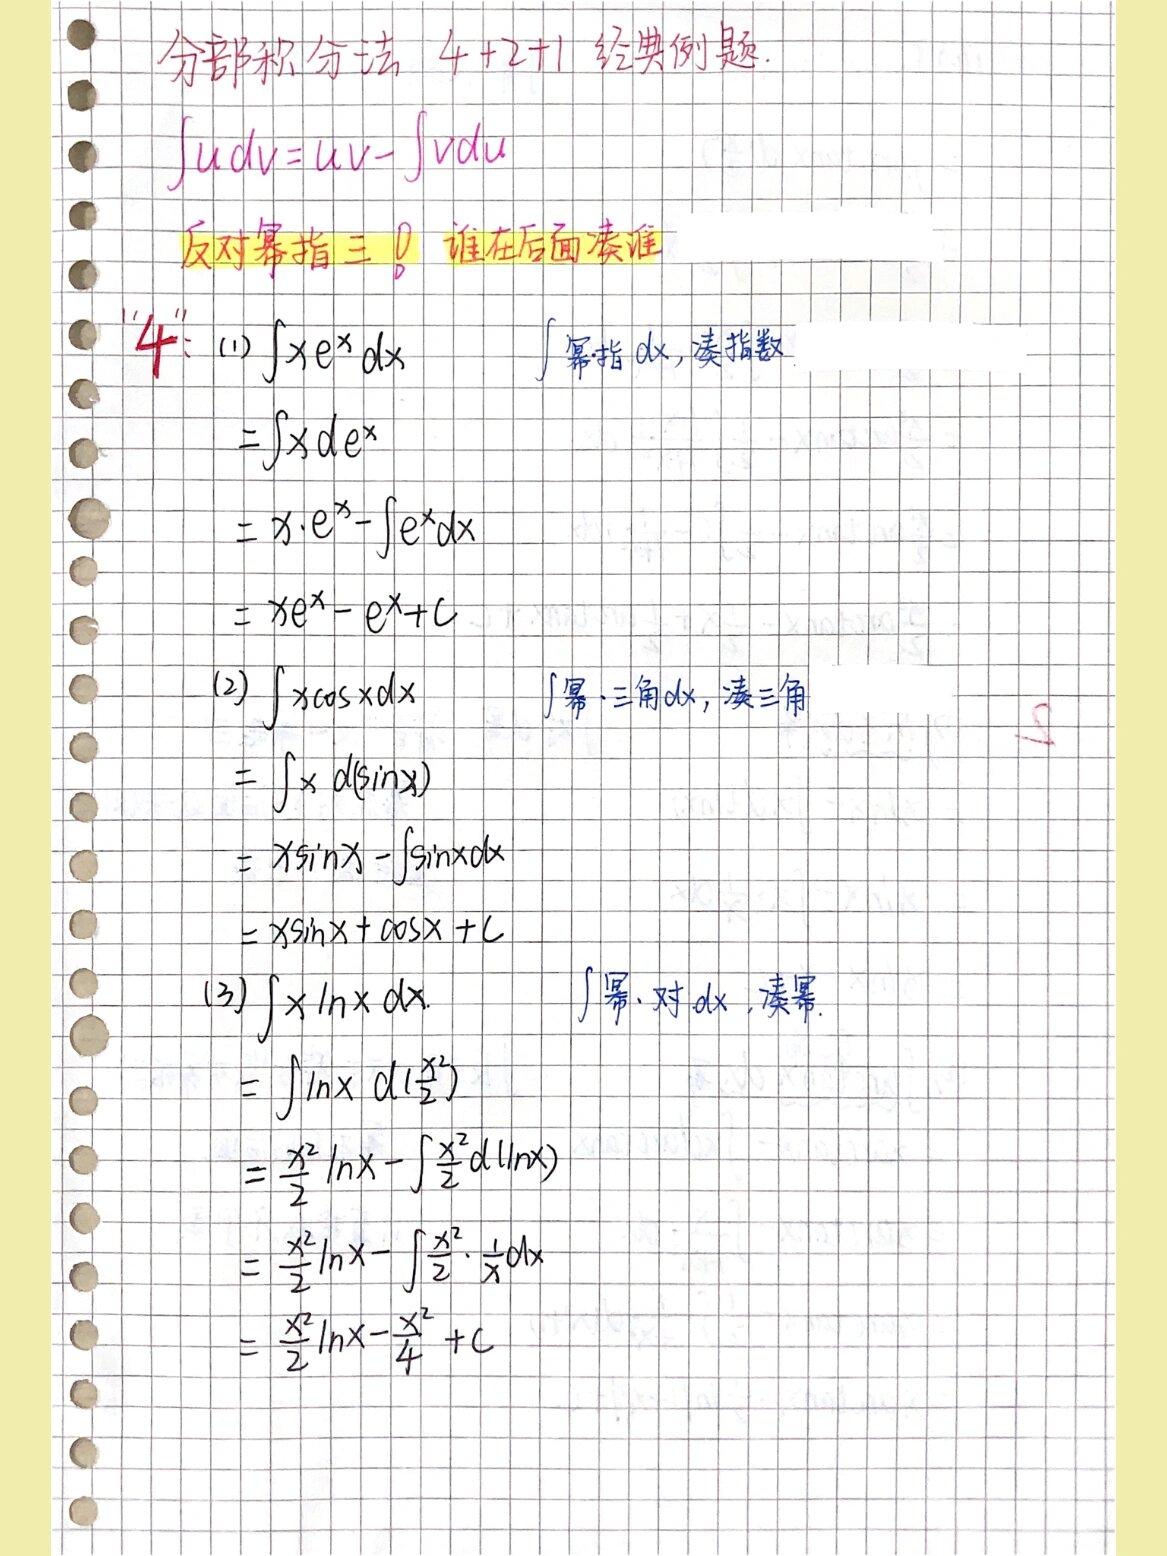 分部积分法 4+2+1 经典例题.
∫udv=uv-∫vdu
反对幂指三! 谁在后面凑谁
"4": (1) ∫xeˣdx ∫幂·指dx,凑指数
=∫xdeˣ
=x·eˣ-∫eˣdx
=xeˣ-eˣ+C
(2) ∫xcosxdx ∫幂·三角dx,凑三角
=∫x d(sinx)
=xsinx-∫sinxdx
=xsinx+cosx+C
(3) ∫x lnx dx. ∫幂·对dx,凑幂.
=∫lnx d(x²/2)
=x²/2 lnx-∫x²/2 d(lnx)
=x²/2 lnx-∫x²/2·1/x dx
=x²/2 lnx-x²/4+C